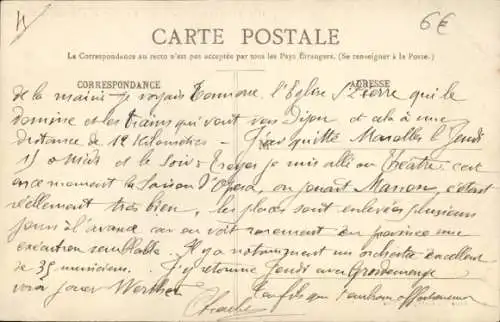 4
6€
CARTE POSTALE
La Correspondance au recto n'est pas acceptée par tous les Pays Étrangers. (Se renseigner à la Poste.)
CORRESPONDANCE
ADRESSE
de la mairie je voyais Tonnerre, l'Eglise St Pierre qui le
domine et les trains qui vont vers Dijon et cela à une
distance de 12 kilomètres — J'ai quitté Marolles le Jeudi
15 à Midi et le Soir à Troyes je suis allé au théâtre c'est
en ce moment la Saison d'Opéra, on jouait Manon, c'était
réellement très bien, les places sont enlevées plusieurs
jours à l'avance car on voit rarement en province une
exécution semblable. Il y a notamment un orchestre excellent
de 35 musiciens. J'y retourne Jeudi avec
voir jouer Werther. Ton fils qui t'embrasse affectueusement